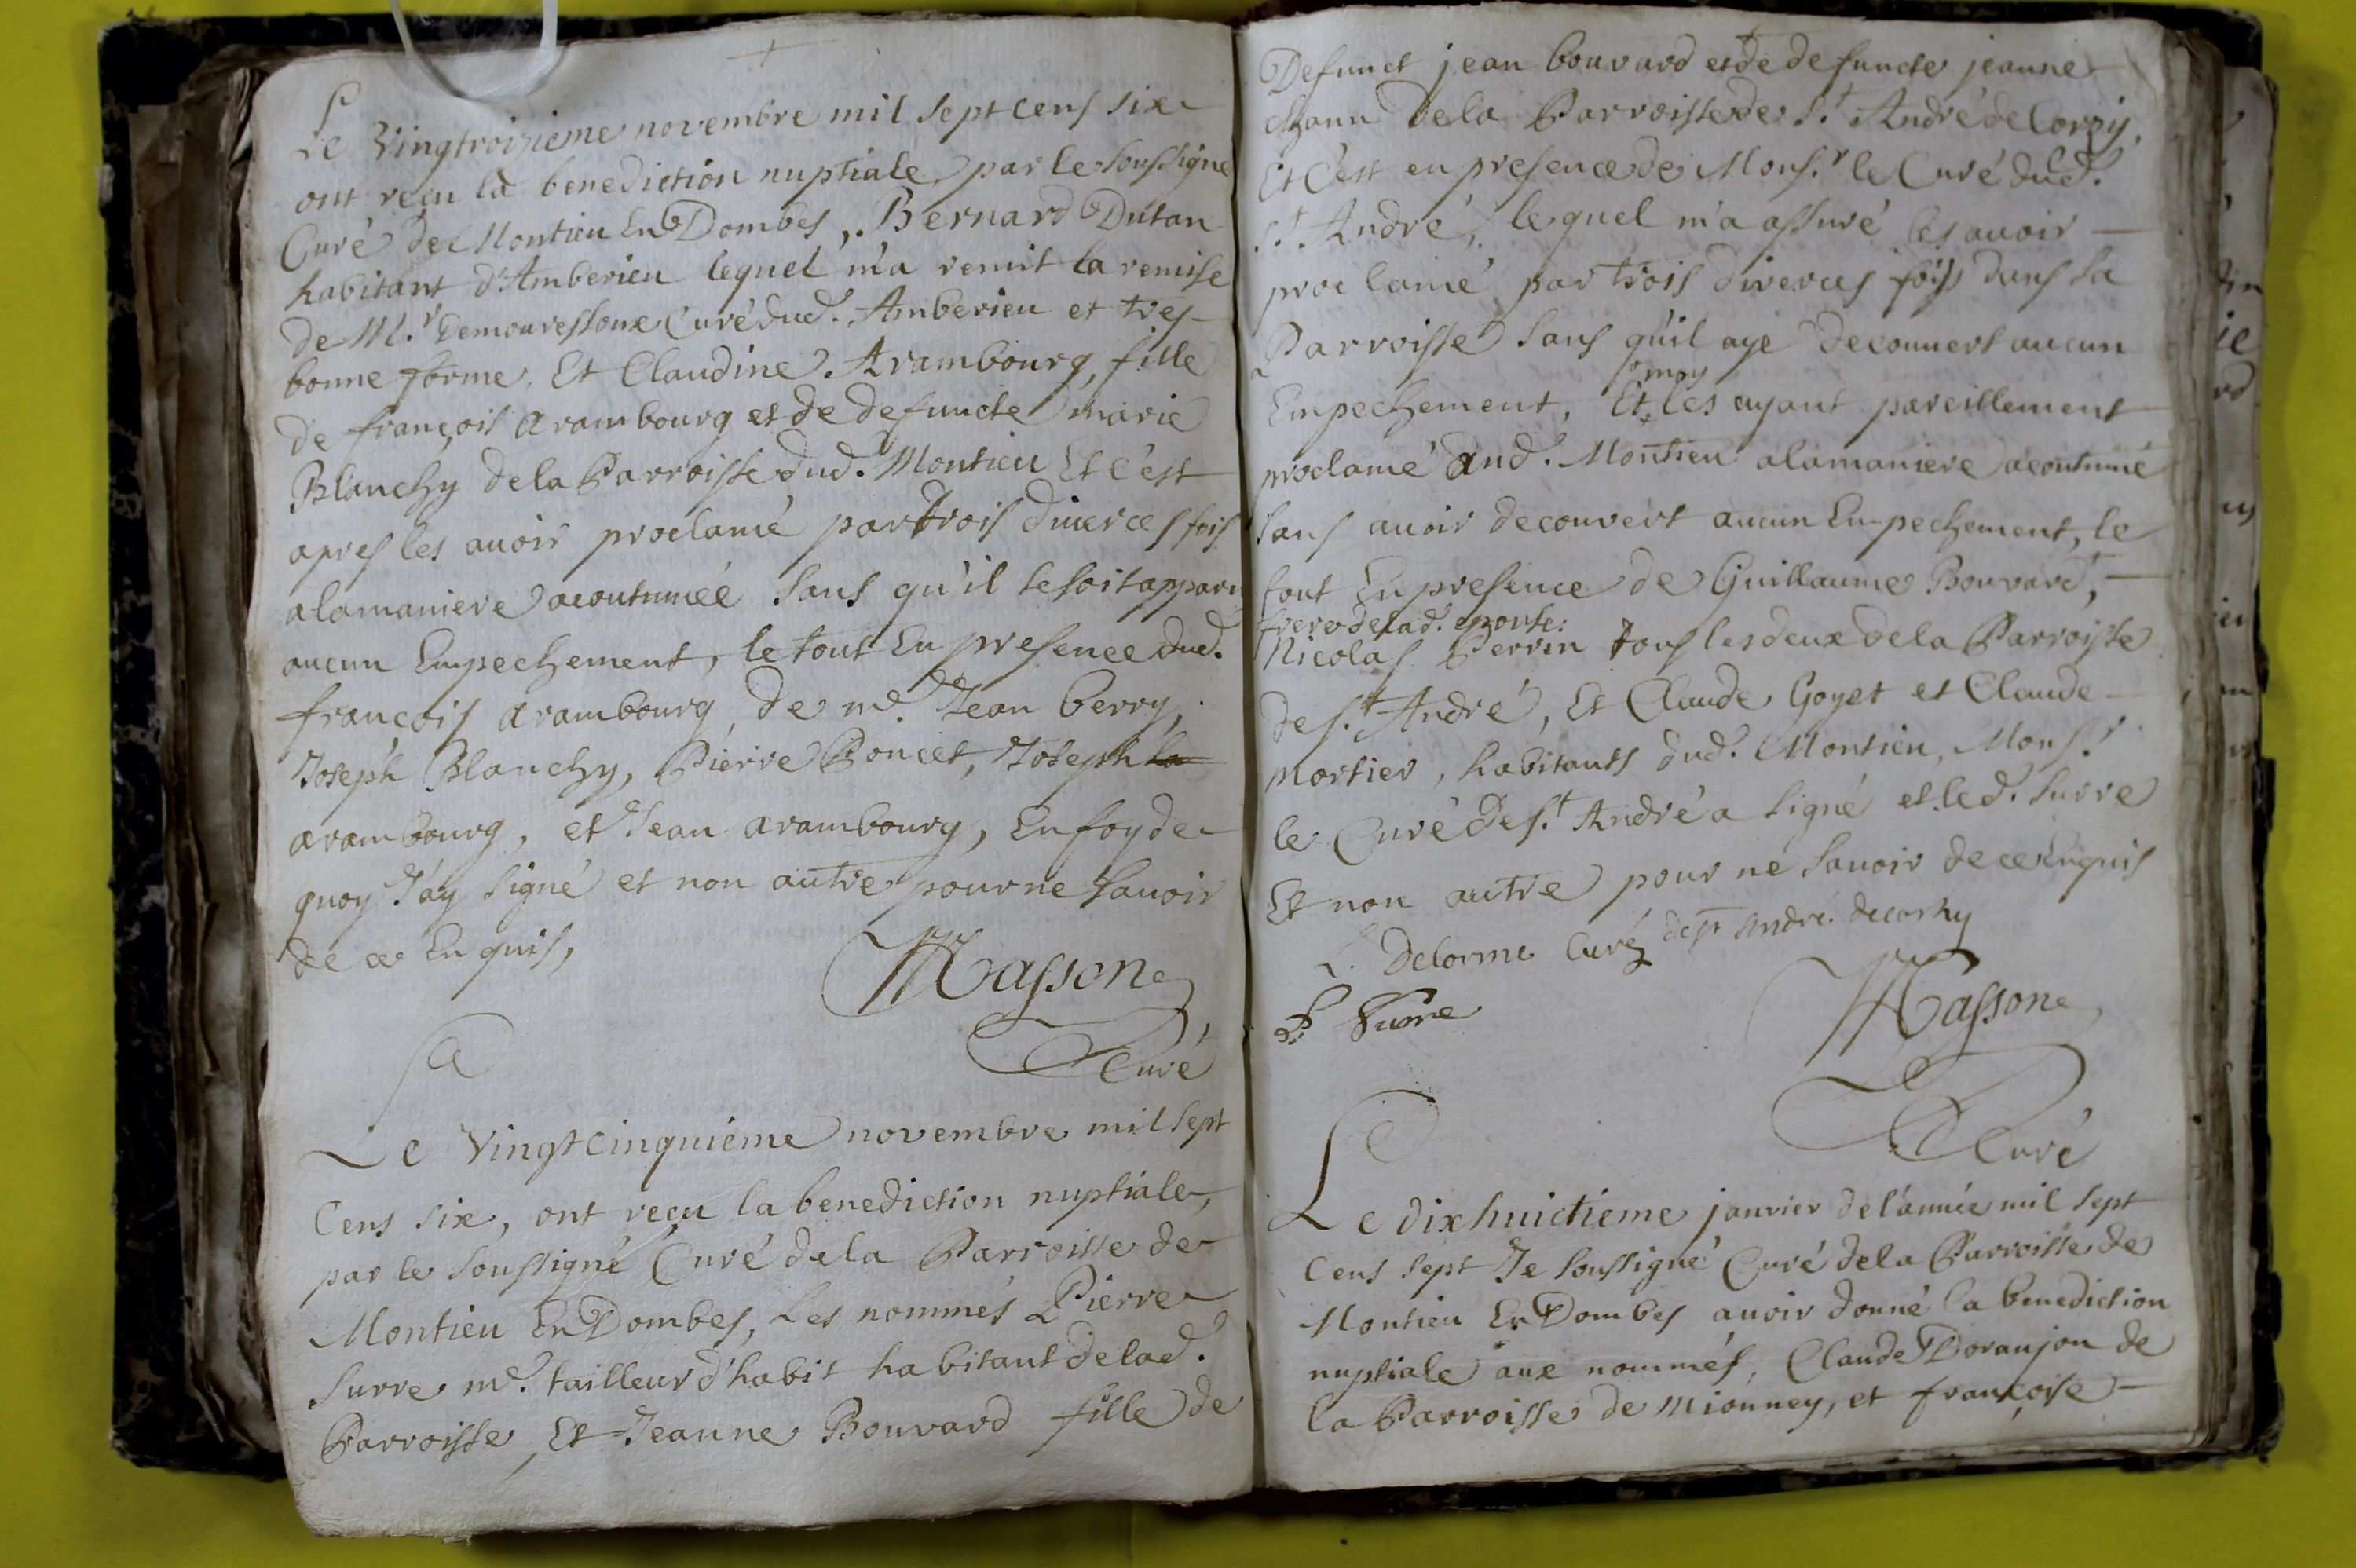 Le Vingtroizieme novembre mil sept cens six
ont reçu la benediction nuptiale, par le soussigné
Curé de Montieu En Dombes, Bernard Dutan
habitant d'Amberieu lequel m'a remit la remise
de M.r Demouressoux Curé dud. Amberieu et tres
bonne forme. Et Claudine Arambourg, fille
de françois arambourg et de defuncte marie
Blanchy de la Parroisse dud. Montieu Et c'est
apres les avoir proclamé par trois diverces fois
a la maniere acoutumée sans qu'il se soit apparu
aucun Empechement, le tout En presence dud.
françois arambourg, de md. Jean berry,
Joseph Blanchy, Pierre Poncet, Joseph la
arambourg, et Jean arambourg, En foy de
quoy J'ay signé et non autre pour ne sauoir
de ce Enquis,
Massone
Curé
Le Vingtcinquieme novembre mil sept
Cens six, ont reçu la benediction nuptiale,
par le soussigné Curé de la Parroisse de
Montieu En Dombes, Les nommés Pierre
Surre md. tailleur d'habit habitant de lad.
Parroisse, Et Jeanne Bouvard fille de
Defunct jean bouvard et de defuncte jeanne
de la Parroisse de S.t André de Corzy,
Et C'est en presence de Mons.r le Curé dud.
S.t André, lequel m'a assuré les auoir
proclamé par trois diverces fois dans sa
Parroisse sans qu'il aye decouuert aucun
moy
Empechement, Et les ayant pareillement
proclamé aud. Montieu a la maniere acoutumé
sans auoir decouvert aucun Empechement, le
tout En presence de Guillaume Bouvard,
frere de lad. epouse:
Nicolas Perrin tous les deux de la Parroisse
de S.t André, Et Claude Goyet et Claude
mortier, habitants dud. Montieu, Mons.r
le Curé de S.t André a signé et led. Surre
Et non autre pour ne sauoir de ce Enquis
Delorme Curé de St André de corzy
P. Surre
Massone
Curé
Le dixhuictieme janvier de l'année mil sept
Cens sept Je soussigné Curé de la Parroisse de
Montieu En Dombes auoir donné la benediction
nuptiale aux nommés, Claude Doranjon de
la Parroisse de Mionney, et françoise